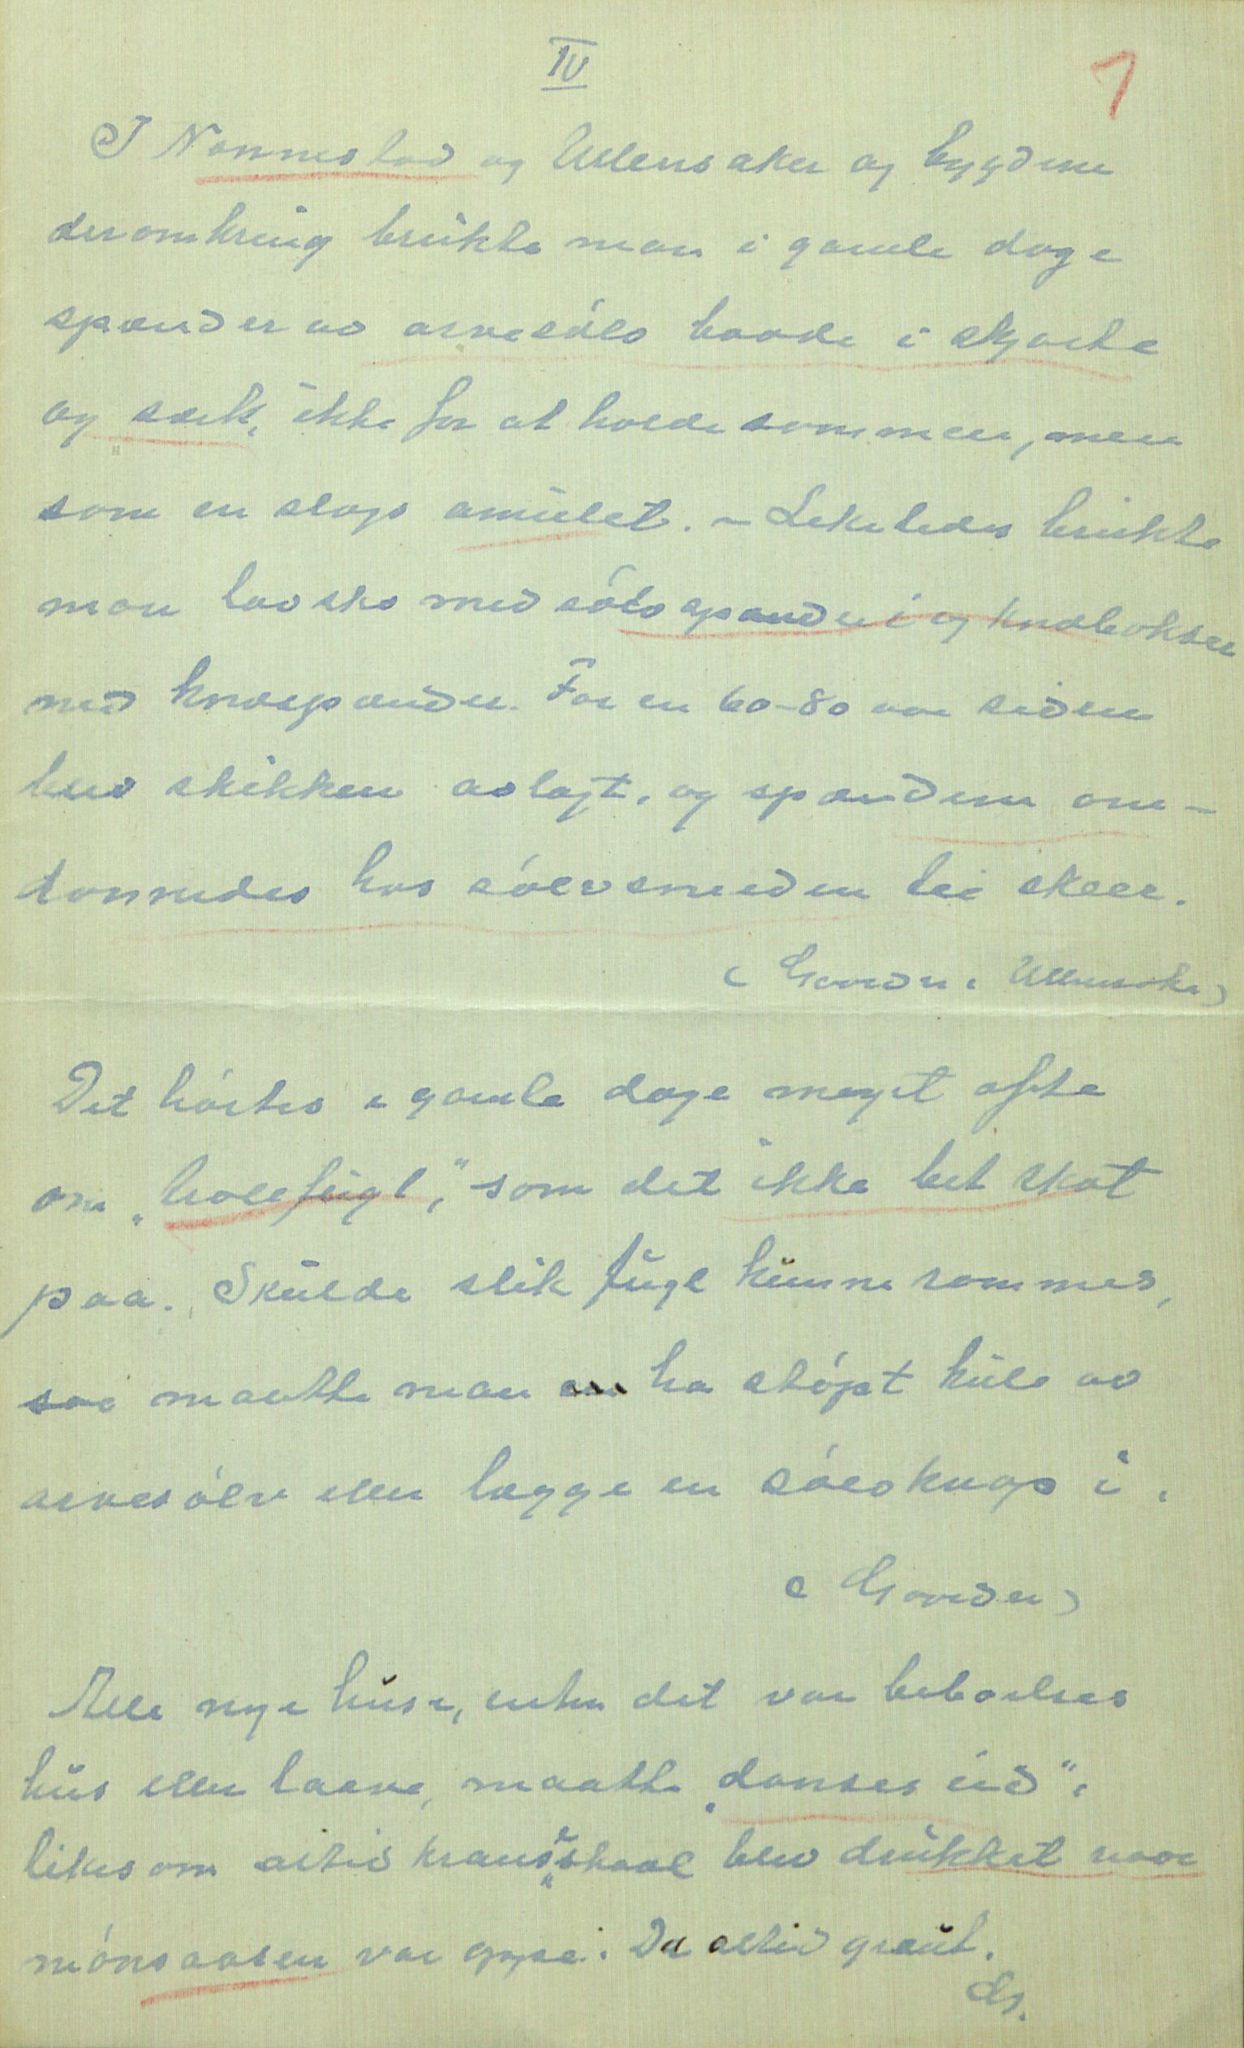 IV
1
I Nannestad og Ullensaker og bygdene
deromkring brukte man i gamle dage
spænder av arvesølv baade i skjorte
og særk, ikke for at holde sammen, men
som en slags amulet. – Likeledes brukte
man lavsko med sølvspænder i og knæbokser
med knæspænder. For en 60-80 aar siden
blev skikken avlagt, og spænderne om-
dannedes hos sølvsmeden til skeer.
( Garder, Ullensaker )
Det hørtes i gamle dage meget ofte
om „trollfugl“, som det ikke bet skot
paa. Skulde slik fugl kunne rammes,
saa maatte man ha støpt kule av
arvesølv eller lægge en sølvknap i.
( Garder )
Alle nye huse, enten det var beboelses
hus eller laave, maatte „danses ind“,
likesom altid kranseskaal blev drukket naar
mønsaasen var oppe. Da altid graut.
ds.